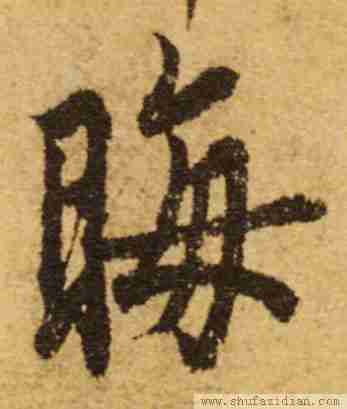 晦
www.shufazidian.com